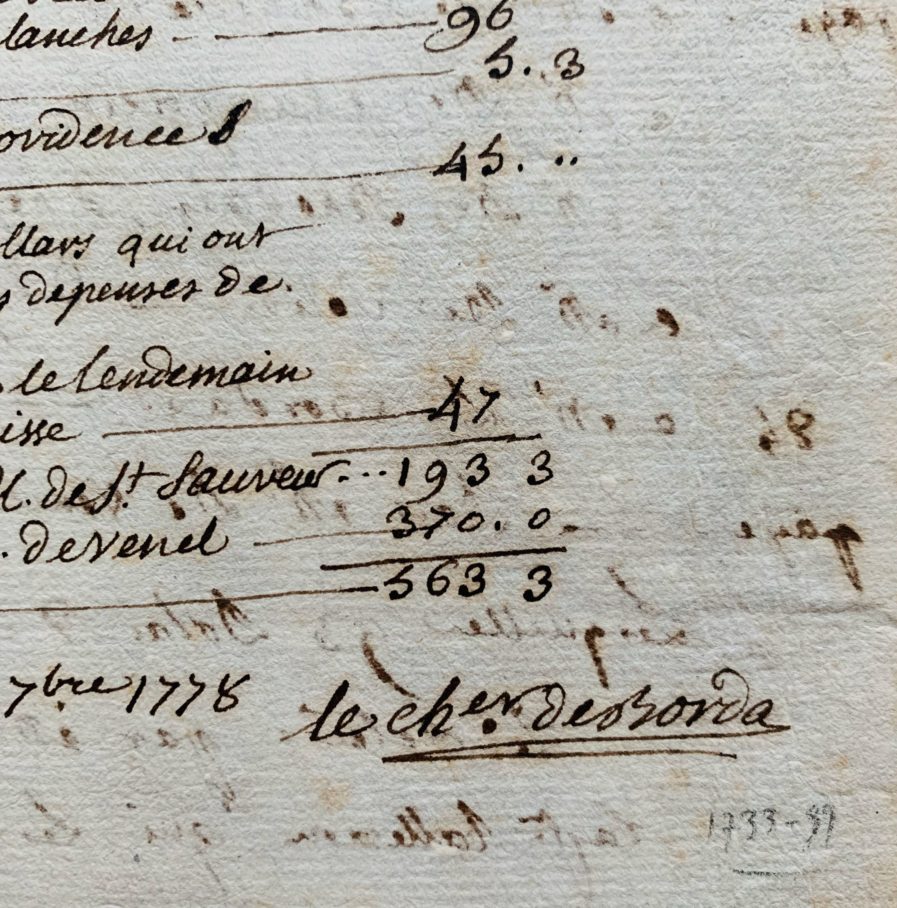 lanches - 96
5. 3
ovidence
45. ..
llars qui ont
s depenses de.
le lendemain
isse 47
M. de St. Sauveur ... 193 3
. de venel 370. 0
563 3
7bre 1778
le cher. de Borda
1733-99